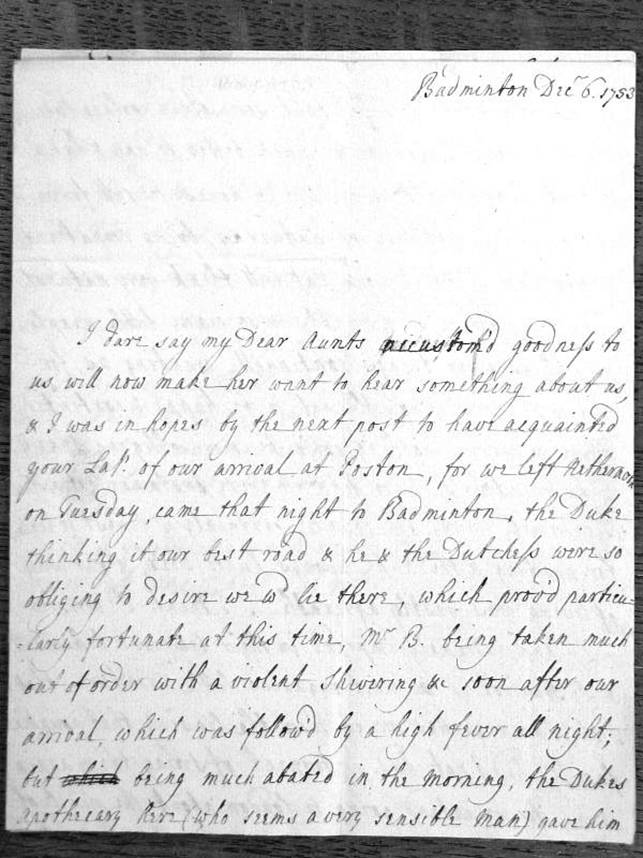 Badminton Decr 6. 1753
I dare say my Dear Aunts accustom'd goodness to
us, will now make her want to hear something about us,
& I was in hopes by the next post to have acquainted
your Lap. of our arrival at Foston, for we left
on Tuesday, came that night to Badminton, the Duke
thinking it our best road & he & the Dutchess were so
obliging to desire we wd lie there, which prov'd particu-
-larly fortunate at this time, Mr B. being taken much
out of order with a violent shivering &c soon after our
arrival, which was follow'd by a high fever all night;
but which being much abated in the morning, the Dukes
apothecary here (who seems a very sensible man) gave him